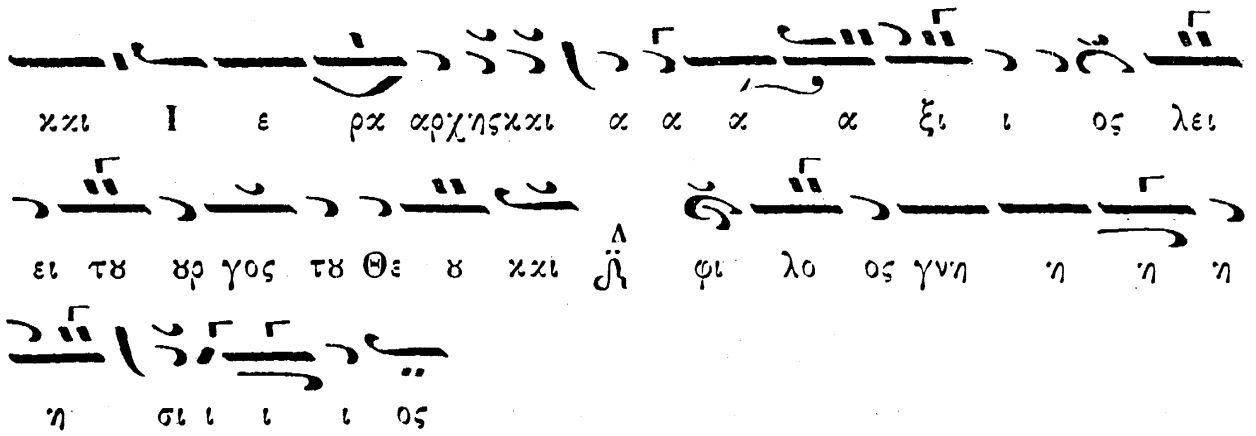 και Ι ε ρα αρχης και α α α α ξι ι ος λει
ει τȣ ȣρ γος τȣ Θε ȣ και φι λο ος γνη η η η
η σι ι ι ι ος